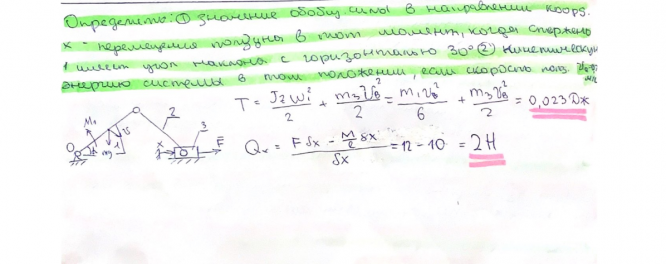 Определить: ① значение обобщ. силы в направлении коорд.
x - перемещения ползуна в тот момент, когда стержень
1 имеет угол наклона с горизонтально 30° ② Кинетическую
энергию системы в том положении, если скорость полз.
T = J₂ω₁²/2 + m₃V_B²/2 = m₁V_B²/6 + m₃V_B²/2 = 0,023 Дж
Qₓ = (Fδx - M/ℓ δx)/δx = 12 - 10 = 2Н
M₁ 2 3 F
O 1 mg x